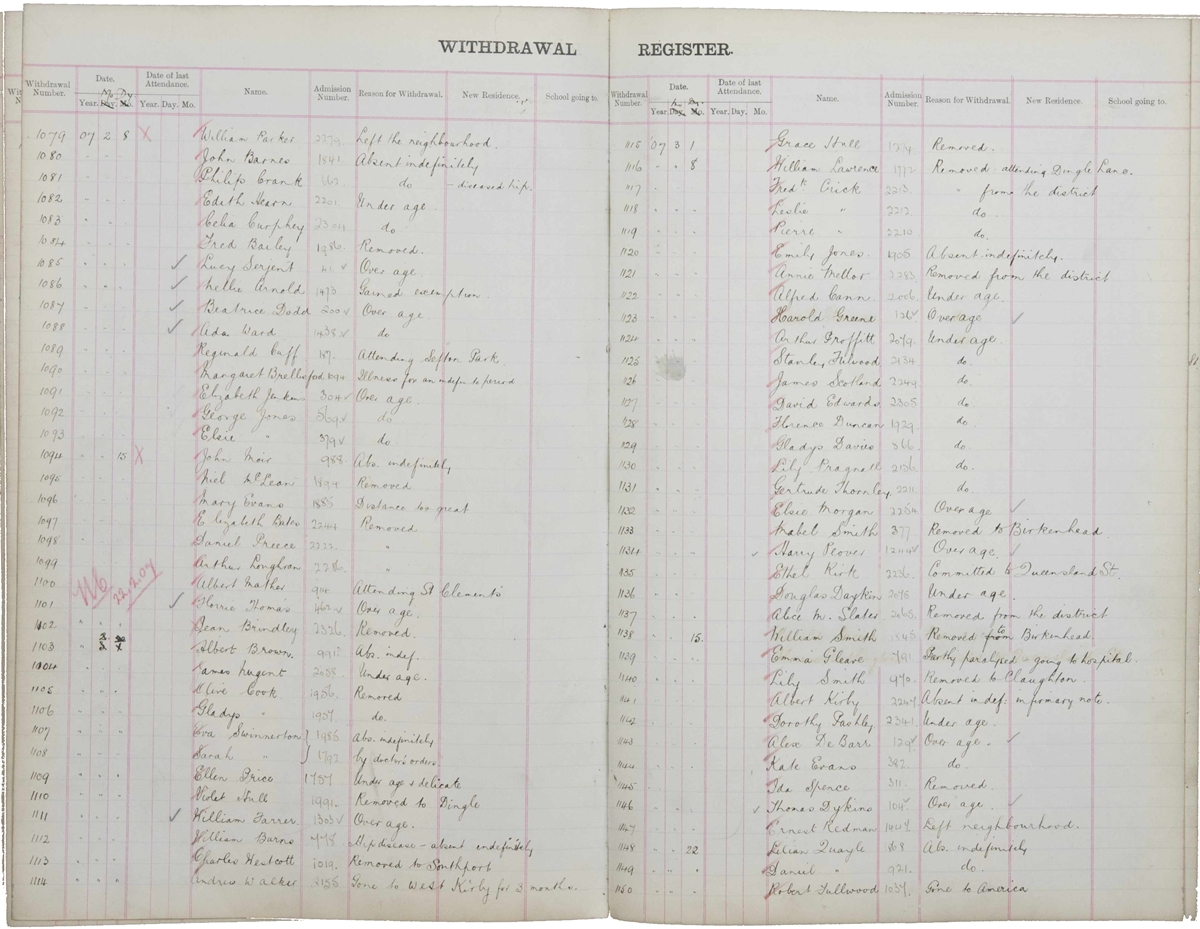 WITHDRAWAL REGISTER.
Withdrawal Number. Date. Year. Day. Mo. Date of last Attendance. Year. Day. Mo. Name. Admission Number. Reason for Withdrawal. New Residence. School going to.
Mo. Dy
1079 07 2 8 X William Parker Left the neighbourhood.
1080 John Barnes 1841 Absent indefinitely
1081 Philip Crank do - diseased hip.
1082 Edith Hearn 2201 Under age
1083 Celia Curphey 2304 do
1084 Fred Bailey 1986 Removed.
1085 ✓ Lucy Serjent Over age
1086 ✓ Nellie Arnold 1493 Gained exemption
1087 ✓ Beatrice Dodd 200 ✓ Over age
1088 ✓ Ada Ward 1438 ✓ do
1089 Reginald Cuff 187. Attending Sefton Park
1090 Margaret Brellisford 1094 Illness for an indefinite period
1091 Elizabeth Jenkins 304 ✓ Over age
1092 George Jones 569 ✓ do
1093 Elsie " 379 ✓ do
1094 15 X John Moir 988 Abs. indefinitely
1095 Niel McLean 1894 Removed
1096 Mary Evans 1885 Distance too great
1097 Elizabeth Bates 2244 Removed
1098 Daniel Preece 2222 "
1099 Arthur Loughran 2286 "
1100 Albert Mather 914 Attending St Clements'
N6 22.2.07
1101 ✓ Florrie Thomas 462 ✓ Over age
1102 Jean Brindley 2326 Removed
1103 Albert Brown 991 Abs. indef.
1104 James Nugent 2058 Under age.
1105 Olive Cook 1956 Removed
1106 Gladys " 1957 do.
1107 Eva Swinnerton } 1985 Abs. indefinitely
1108 Sarah " } 1792 by doctor's orders
1109 Ellen Price 1757 Under age & delicate
1110 Violet Hull 1991 Removed to Dingle
1111 ✓ William Farrer 1303 ✓ Over age.
1112 William Burns 778 Hip disease - absent indefinitely
1113 Charles Westcott 1019 Removed to Southport
1114 Andrew Walker 2155 Gone to West Kirby for 3 months.
Withdrawal Number. Date. Year. Day. Mo. Date of last Attendance. Year. Day. Mo. Name. Admission Number. Reason for Withdrawal. New Residence. School going to.
1115 07 3 1 Grace Hull Removed.
1116 8 William Lawrence 1772 Removed - attending Dingle Lane.
1117 Fredk. Crick 2213 " from the district
1118 Leslie " 2212 do.
1119 Pierre " 2210 do.
1120 Emily Jones 1905 Absent indefinitely.
1121 Annie Mellor 2283 Removed from the district
1122 Alfred Cann 2006 Under age
1123 Harold Greene 126 ✓ Over age ✓
1124 Arthur Proffitt 2079 Under age
1125 Stanley Fulwood 2134 do.
1126 James Scotland 2249 do.
1127 David Edwards 2305 do.
1128 Florence Duncan 1929 do.
1129 Gladys Davies 366 do.
1130 Lily Pragnell 2136 do.
1131 Gertrude Thornley 2211 do.
1132 Elsie Morgan 2264 Over age ✓
1133 Mabel Smith 377 Removed to Birkenhead
1134 ✓ Harry Plover 1244 ✓ Over age ✓
1135 Ethel Kirk 2236 Committed to Queensland St.
1136 Douglas Daykin 2075 Under age
1137 Alice M. Slater 2265 Removed from the district
1138 15. William Smith 1545 Removed from to Birkenhead.
1139 Emma Gleave 791 Partly paralysed & going to hospital
1140 Lily Smith 970 Removed to Claughton
1141 Albert Kirby 2247 Absent indef: infirmary note.
1142 Dorothy Pashley 2341 Under age
1143 Alex De Barr 129 ✓ Over age. ✓
1144 Kate Evans 382 do.
1145 Ida Spence 311. Removed.
1146 ✓ Thomas Dykins 109 ✓ Over age ✓
1147 Ernest Redman 1907 Left neighbourhood.
1148 22 Lilian Quayle 168 Abs. indefinitely
1149 Daniel " 921 do.
1150 Robert Fullwood 1037 Gone to America